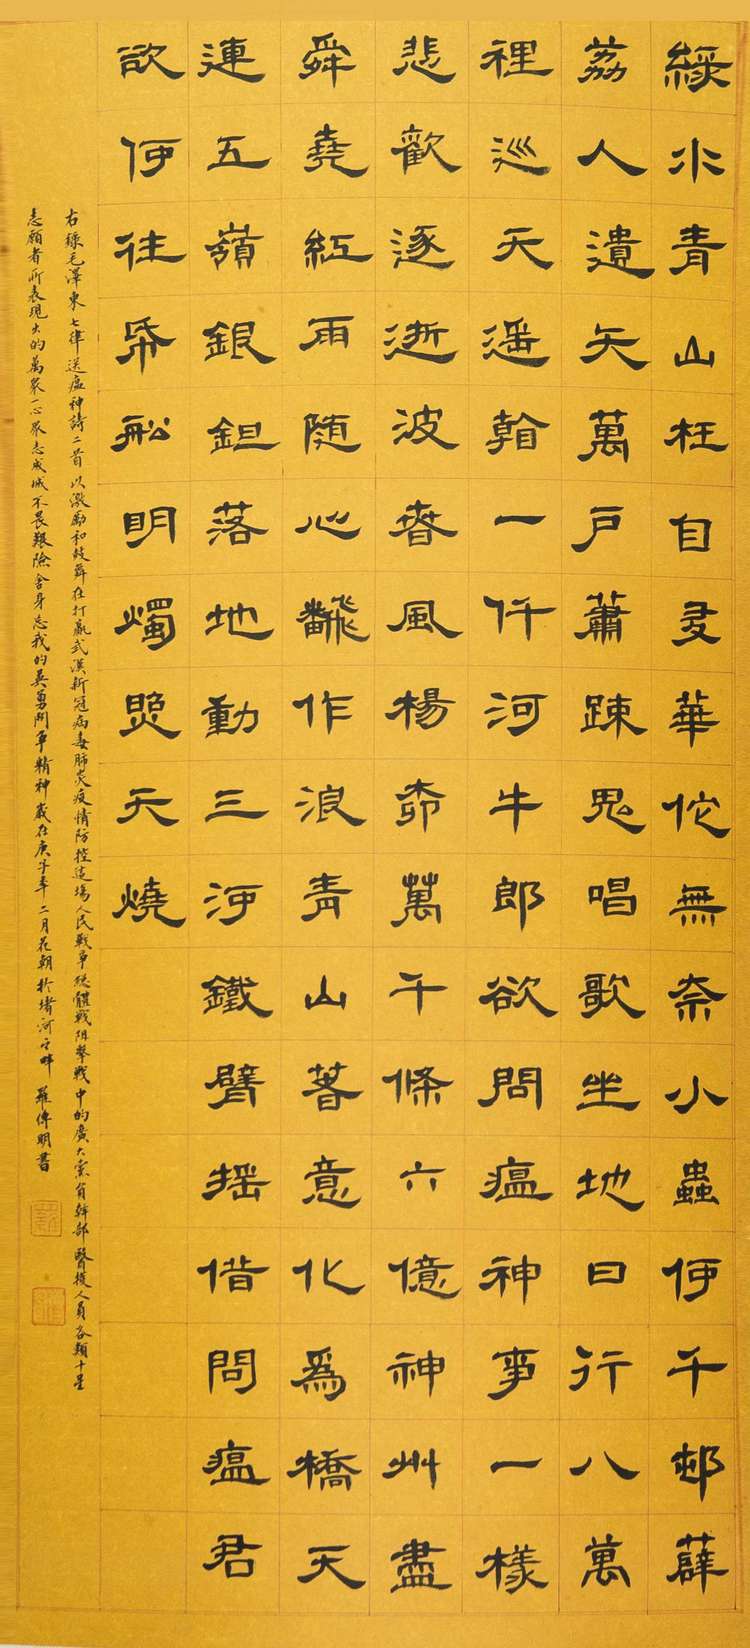 綠水青山枉自多華佗無奈小蟲何千邨薜
荔人遺矢萬戶蕭疎鬼唱歌坐地日行八萬
裡巡天遥看一仟河牛郎欲問瘟神事一樣
悲歡逐逝波春風楊柳萬千條六億神州盡
舜堯紅雨随心飜作浪青山着意化為橋天
連五嶺銀鉏落地動三河鐵臂摇借問瘟君
欲何往帋船明燭照天燒
右錄毛澤東七律送瘟神詩二首以激勵和鼓舞在打贏武漢新冠病毒肺炎疫情防控這場人民戰爭總體戰阻擊戰中的廣大黨員幹部醫護人員各類十星
志願者所表現出的萬眾一心眾志成城不畏艱險舍身忘我的英勇鬥爭精神歲在庚子年二月花朝於堵河之畔 羅傳明書